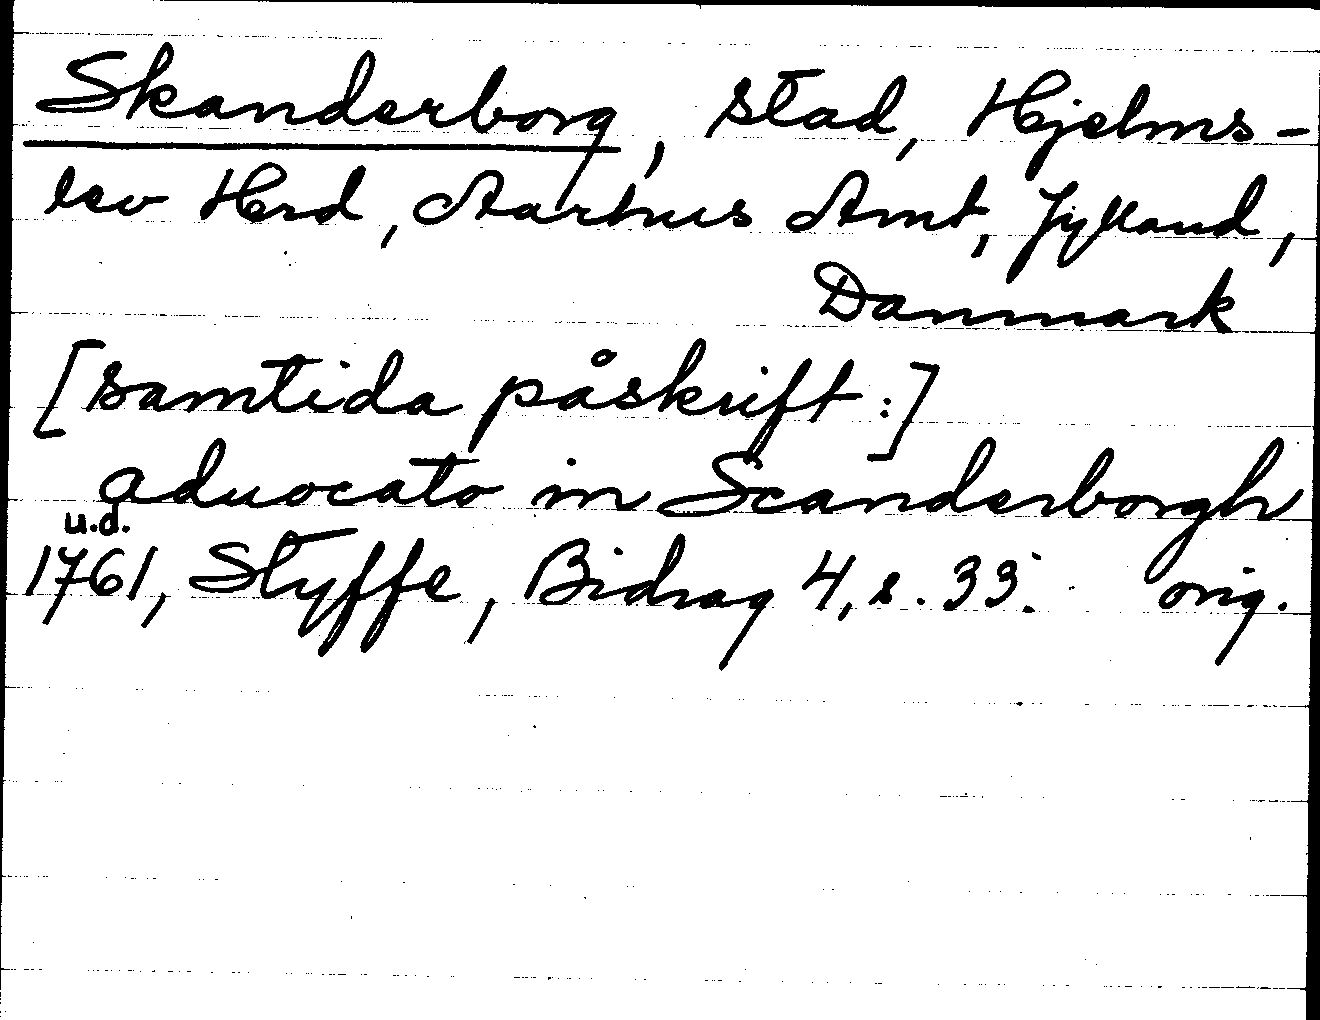 Skanderborg, stad, Hjelms-
lev Herd, Aarhus Amt, Jylland,
Danmark
[samtida påskrift:]
aduocato in Scanderborgh
u.d.
1761, Styffe, Bidrag 4, s. 33. orig.